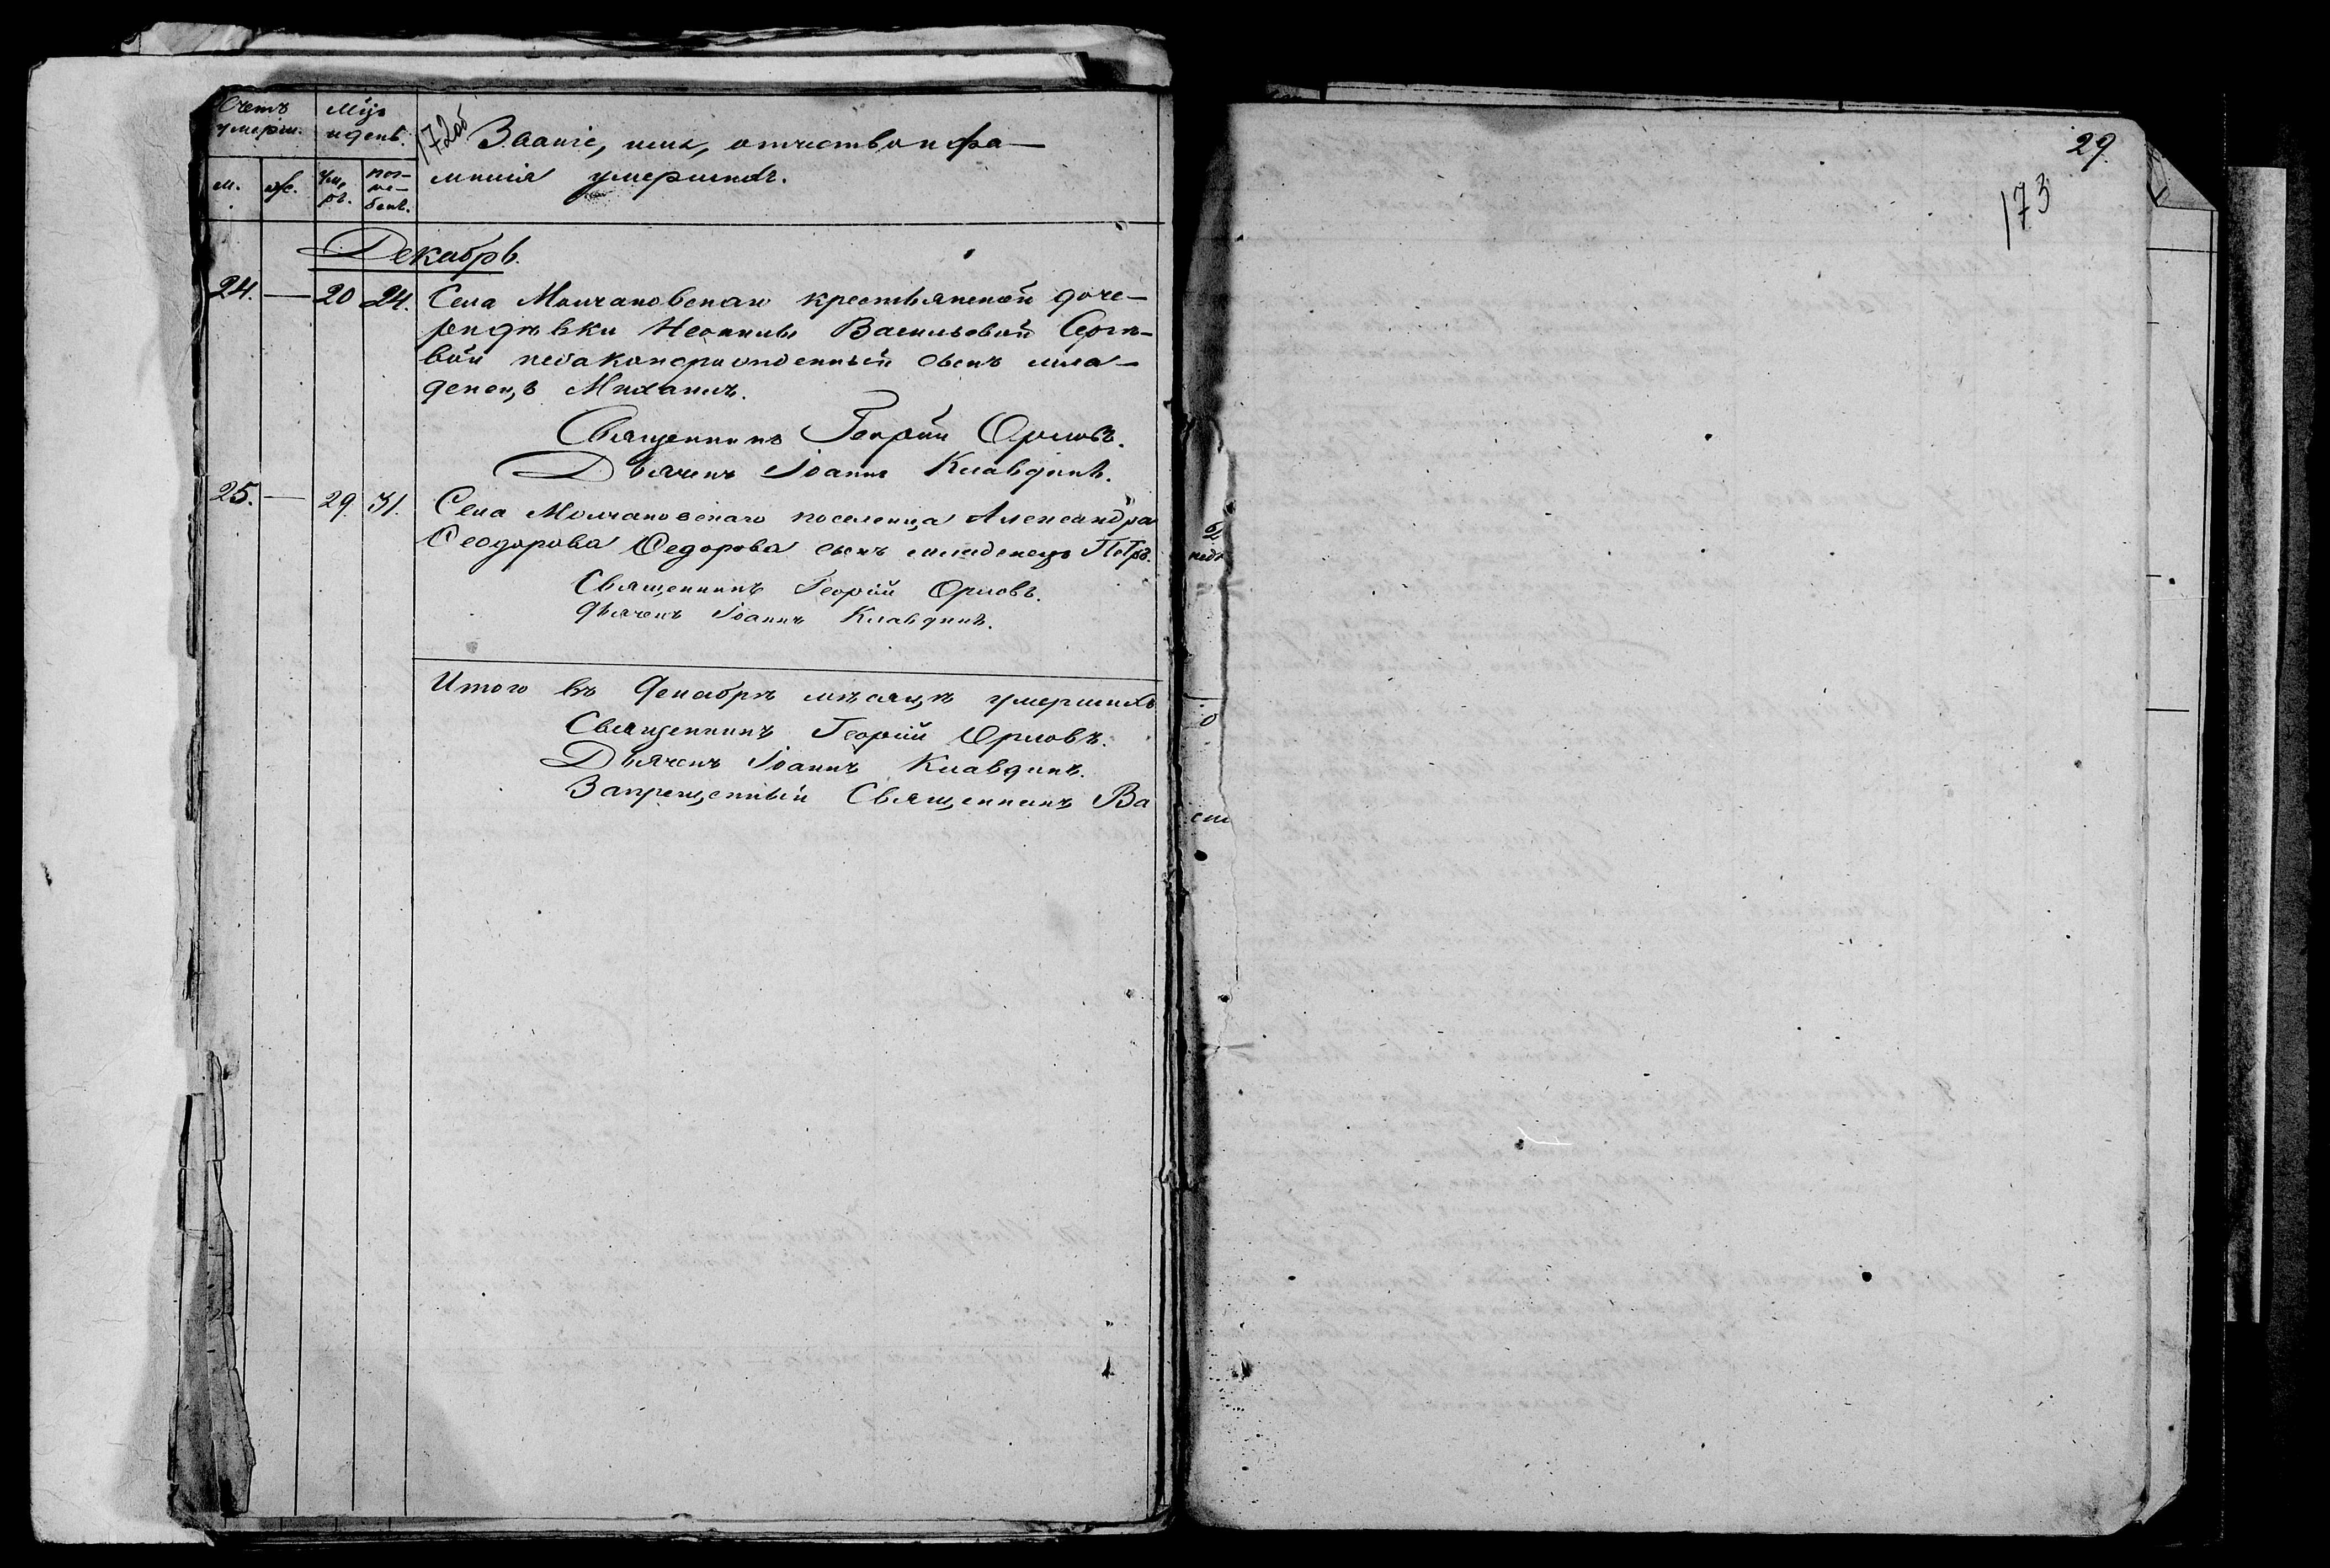 Счетъ умерш.
Мѣс. и день.
172об
Званіе, имя, отчество и фа-
милія умершихъ.
м.
ж.
ум. ръ.
пог-ре-бенъ.
Декабрь.
24. — 20 24. Села Молчановскаго крестьянской доче-
ри дѣвки Неониллы Васильевой Серге-
вой незаконорожденный сынъ мла-
денецъ Михаилъ.
Священникъ Георгій Орловъ.
Дьячекъ Іоаннъ Клавдинъ.
25. — 29. 31. Села Молчановскаго поселенца Александра
Ѳеодорова Ѳедорова сынъ младенецъ Петръ.
Священникъ Георгій Орловъ.
Дьячекъ Іоаннъ Клавдинъ.
Итого въ Декабрѣ мѣсяцѣ умершихъ
Священникъ Георгій Орловъ.
Дьячекъ Іоаннъ Клавдинъ.
Запрещенный Священникъ Ва
29.
173